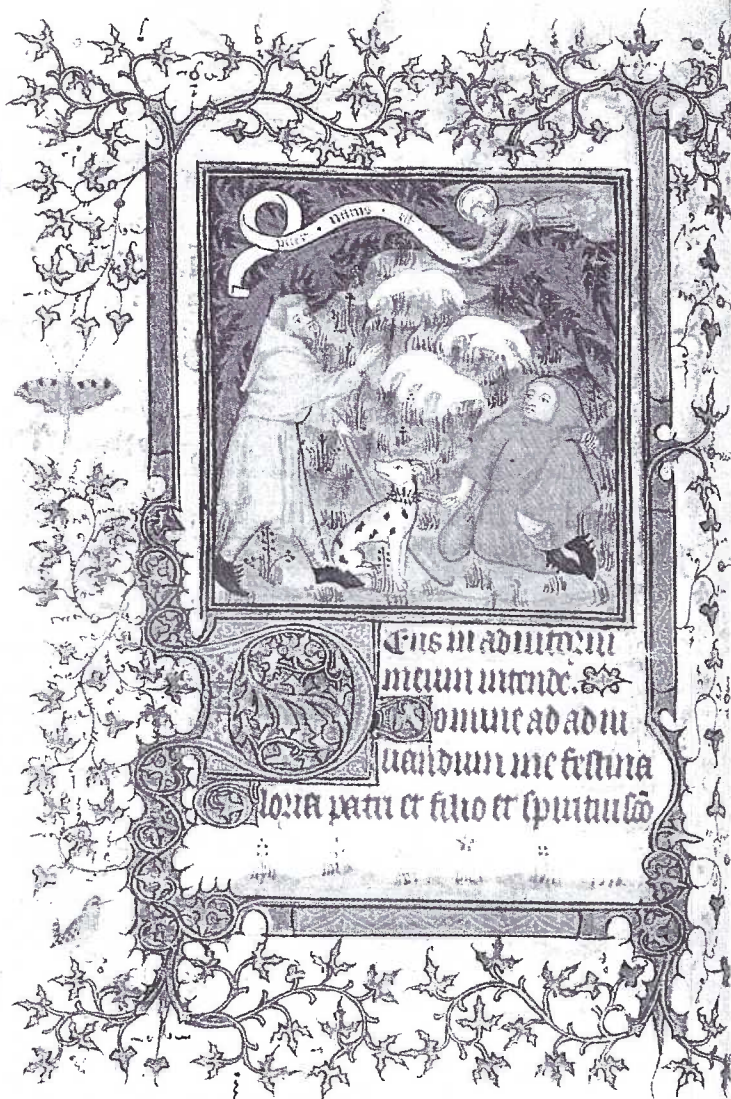 puer · natus ·
Deus in adiutoriu
meum intende.
Domine ad adiu
uandum me festina
Gloria patri et filio et spiritui sc̄o